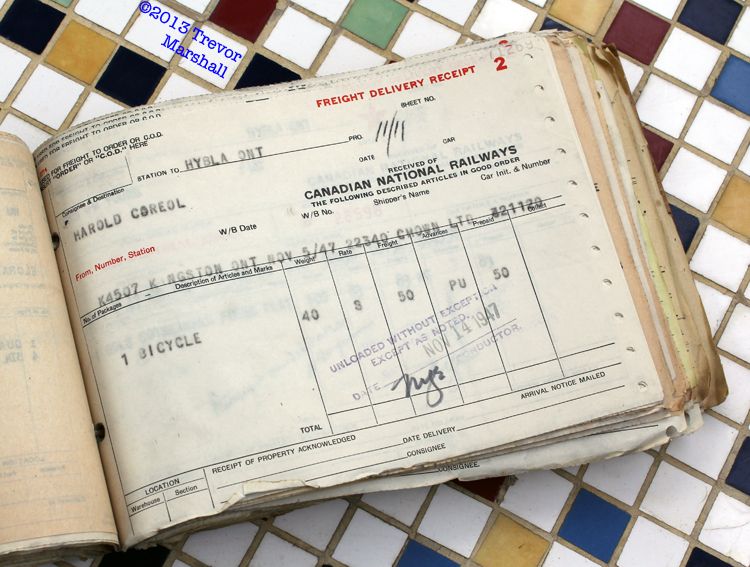 ©2013 Trevor
Marshall
FREIGHT DELIVERY RECEIPT 2
SHEET NO.
FOR FREIGHT TO ORDER OR C.O.D.
"ORDER" OR "C.O.D." HERE
STATION TO HYBLA ONT
PRO. 11/11
DATE CAR
RECEIVED OF
CANADIAN NATIONAL RAILWAYS
THE FOLLOWING DESCRIBED ARTICLES IN GOOD ORDER
Consignee & Destination
HAROLD COREOL
W/B Date W/B No. Shipper's Name Car Init. & Number
From, Number, Station
K4507 KINGSTON ONT NOV 5/47 22340 CHOWN LTD 321120
No. of Packages Description of Articles and Marks Weight Rate Freight Advances Prepaid Collect
40 S 50 PU 50
1 BICYCLE
UNLOADED WITHOUT EXCEPTION
EXCEPT AS NOTED.
DATE NOV 14 1947 CONDUCTOR.
TOTAL
RECEIPT OF PROPERTY ACKNOWLEDGED DATE DELIVERY ARRIVAL NOTICE MAILED
CONSIGNEE
CONSIGNEE.
LOCATION
Warehouse Section